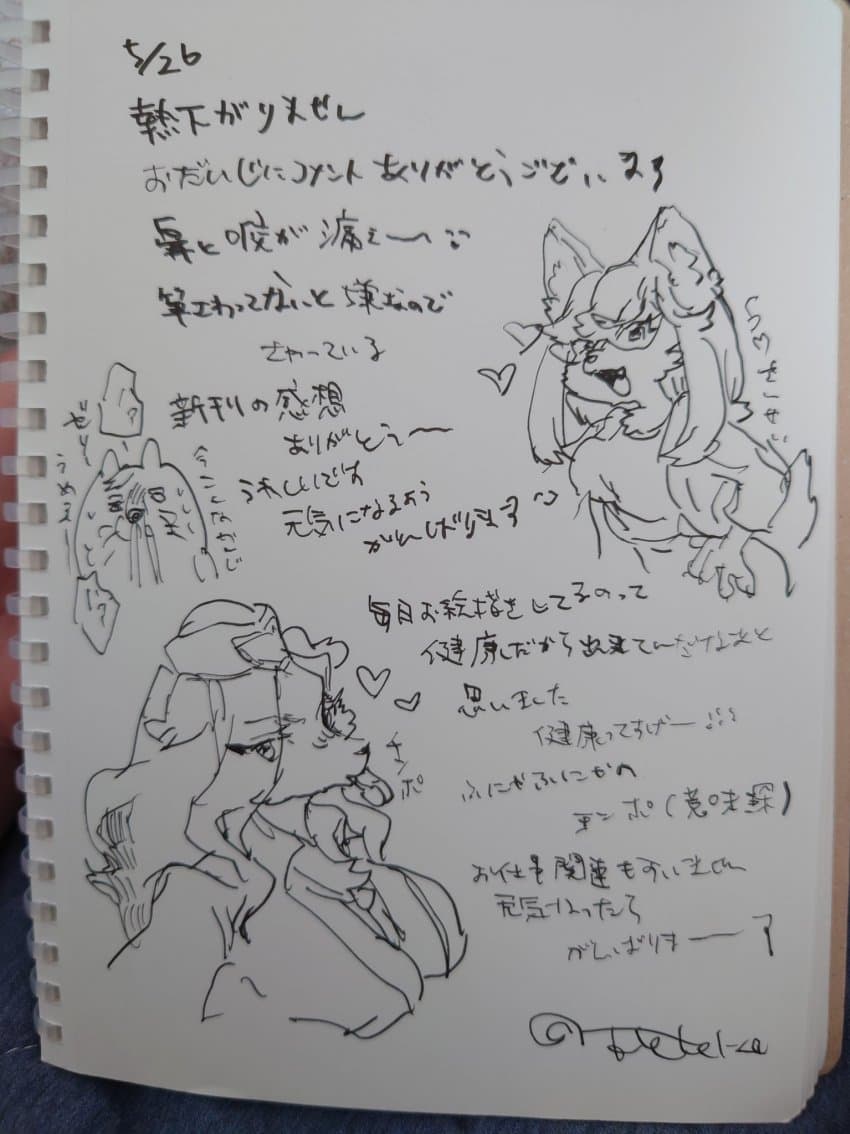 5/26
熱下がりません
おだいじにコメントありがとうございます
鼻と喉が痛ぇ〜〜
筆さわってないと嫌なので
さわっている
新刊の感想
ありがとう〜
うれしいです
元気になるよう
がんばります
今こんなかんじ
うめぇー
?
?
毎日お絵描きしてるのって
健康だから出来てんだなあと
思いました
健康ってすげー
ふにゃふにゃの
チンポ(意味深)
チンポ
お仕事関連もすいません
元気なったら
がんばりまーーす